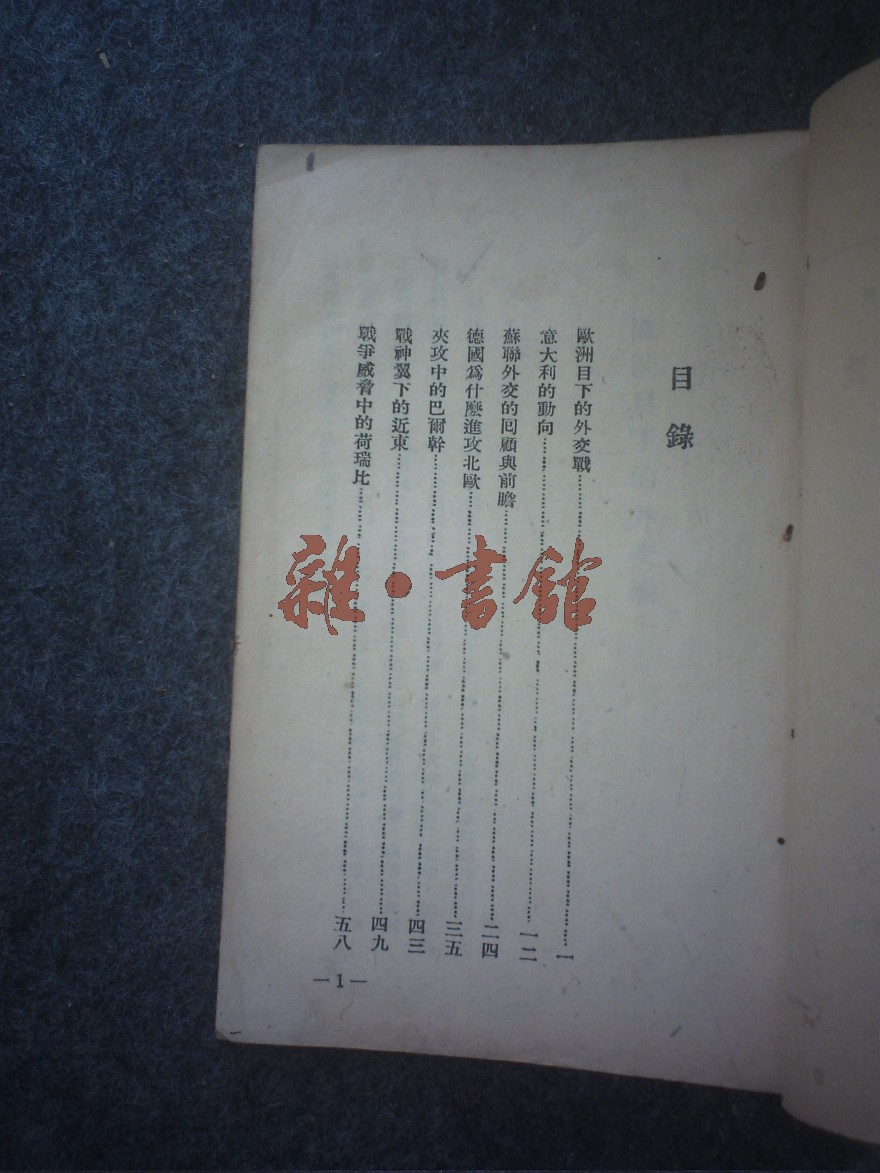 目錄
歐洲目下的外交戰……一
意大利的動向……一二
蘇聯外交的回顧與前瞻……二四
德國爲什麽進攻北歐……三五
夾攻中的巴爾幹……四三
戰神翼下的近東……四九
戰爭威脅中的荷瑞比……五八
—1—
雜·書館